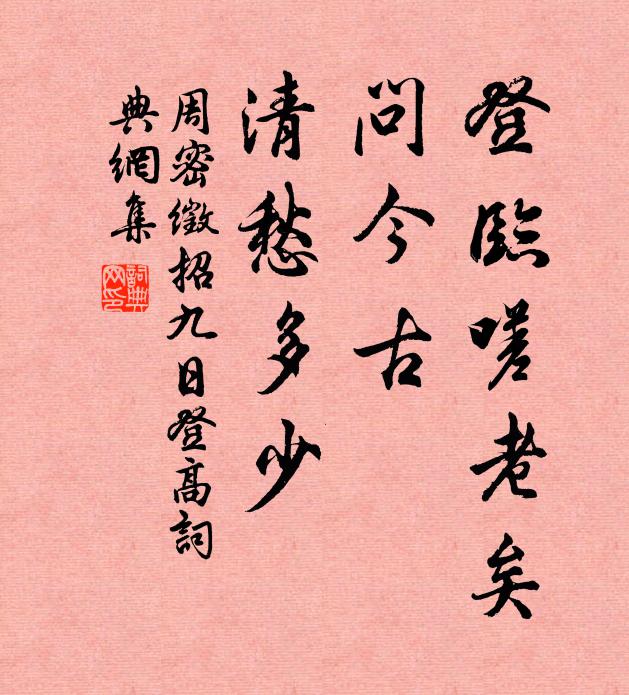 登臨嗟老矣
問今古
清愁多少
周密徵招九日登高詞
典網集
詞典網印